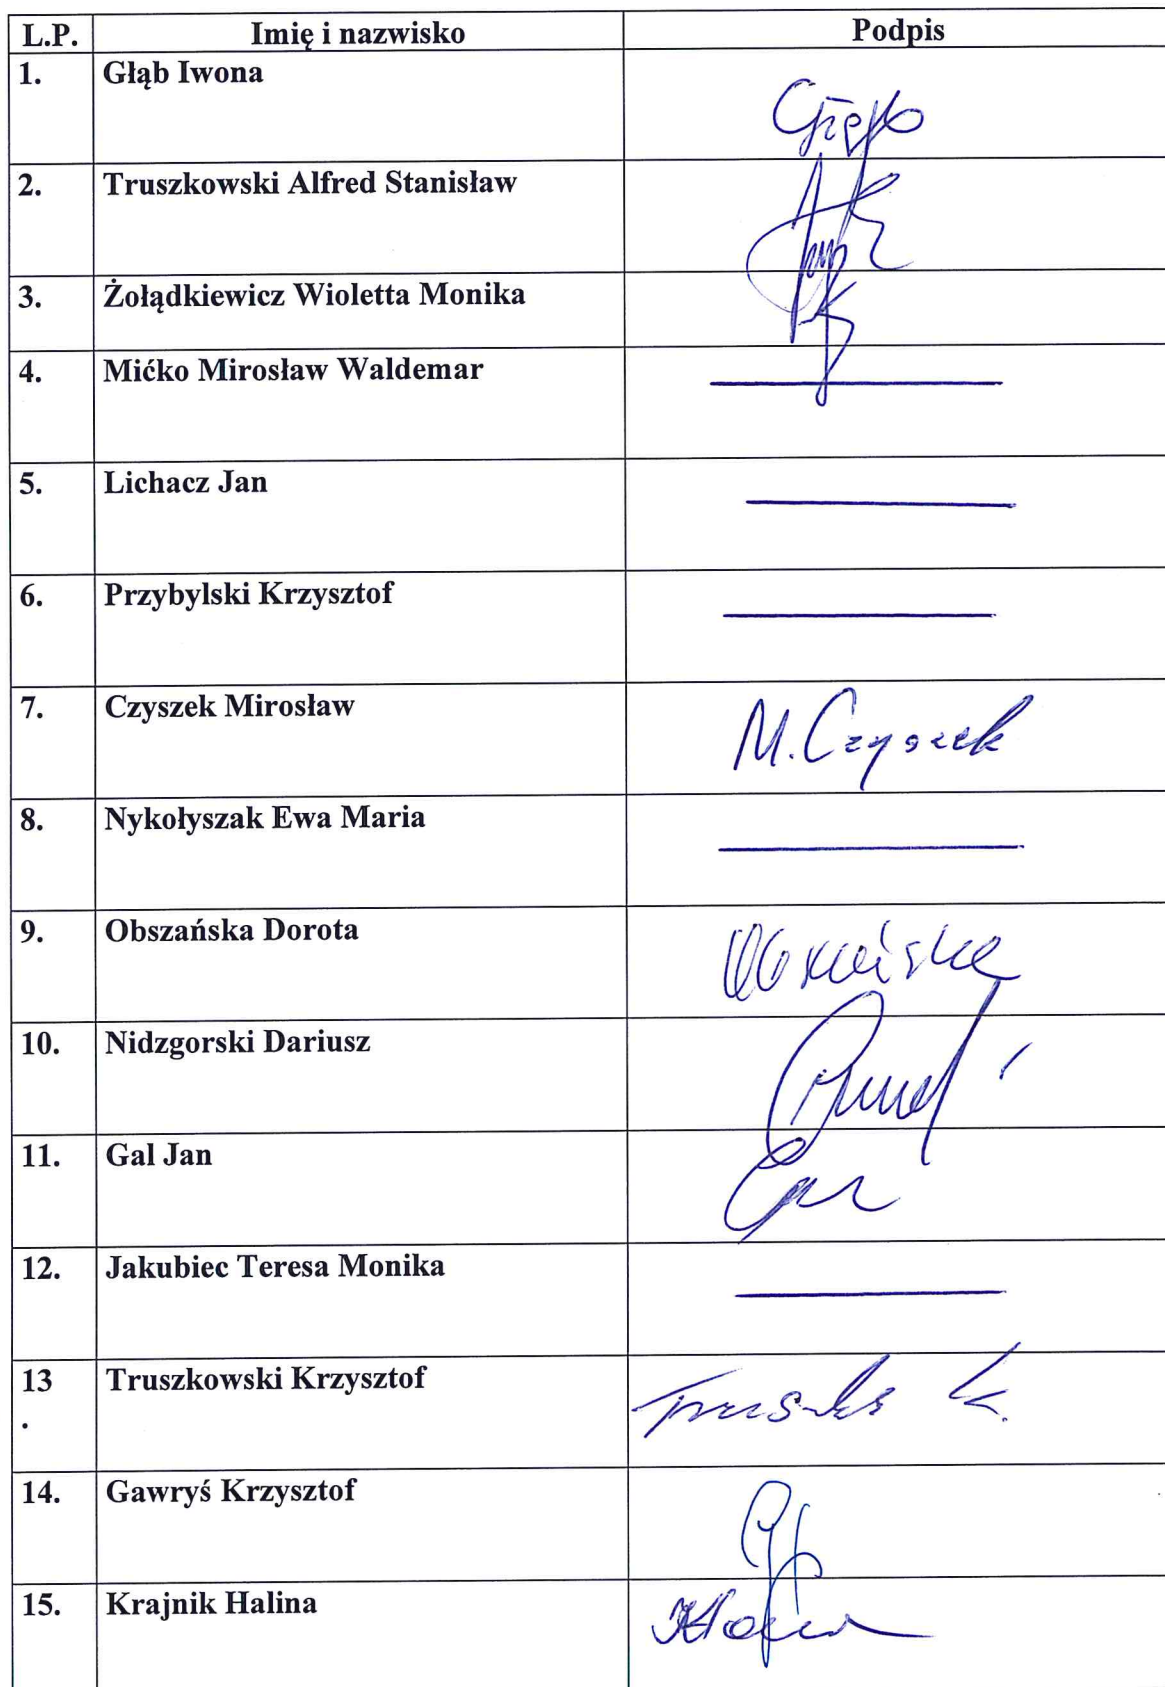 L.P. Imię i nazwisko Podpis
1. Głąb Iwona
2. Truszkowski Alfred Stanisław
3. Żołądkiewicz Wioletta Monika
4. Mićko Mirosław Waldemar
5. Lichacz Jan
6. Przybylski Krzysztof
7. Czyszek Mirosław M. Czyszek
8. Nykołyszak Ewa Maria
9. Obszańska Dorota
10. Nidzgorski Dariusz
11. Gal Jan
12. Jakubiec Teresa Monika
13 Truszkowski Krzysztof
.
14. Gawryś Krzysztof
15. Krajnik Halina